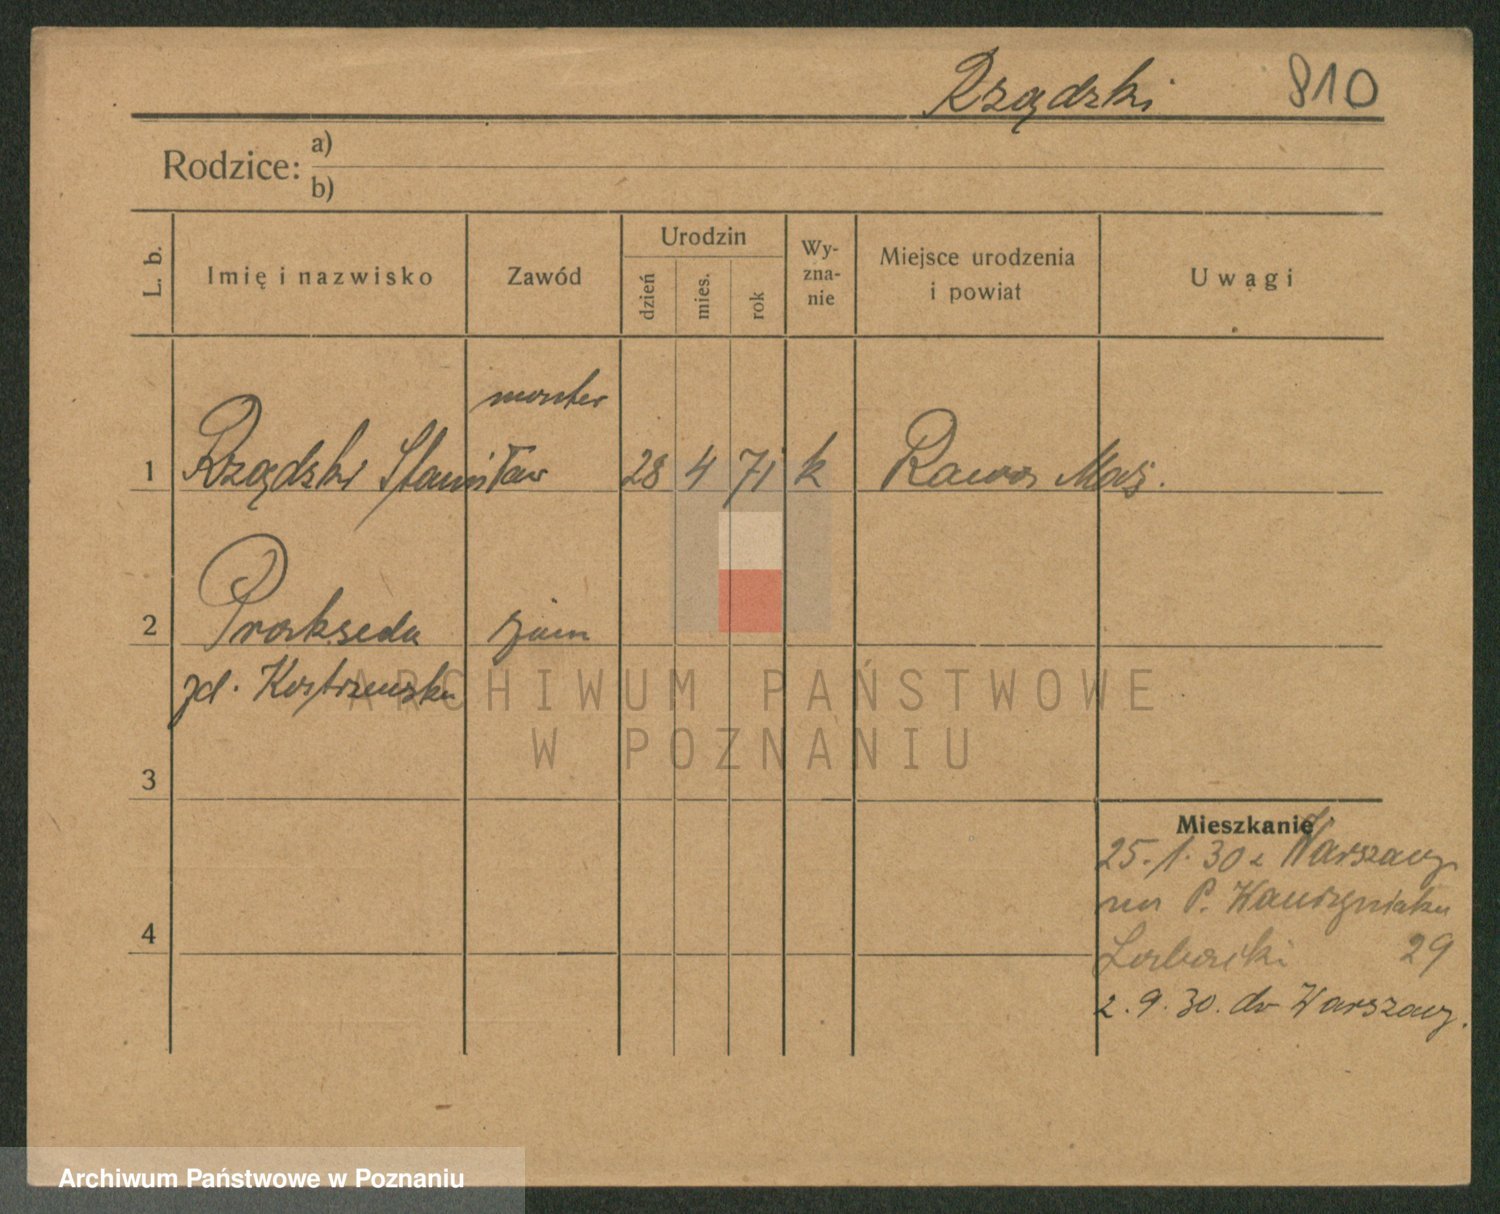 Rządzki 810
Rodzice: a)
b)
L. b.
Imię i nazwisko
Zawód
Urodzin
dzień
mies.
rok
Wy-
zna-
nie
Miejsce urodzenia
i powiat
Uwagi
monter
1 Rządzki Stanisław 28 4 71 k Rawa Maz.
2 Prakseda
zd. Kostrzewska
3
4
Mieszkanie
25.1.30 z Warszawy
na P. Wawrzyniaka
29
2.9.30. do Warszawy.
ARCHIWUM PAŃSTWOWE
W POZNANIU
Archiwum Państwowe w Poznaniu